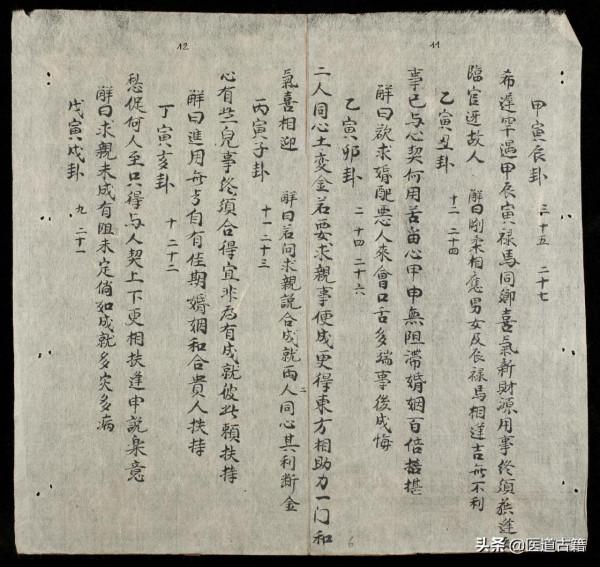 11
甲寅辰卦 三十五 二十七
希逢罕遇甲辰寅禄馬同鄉喜氣新財源用事终須蔭逢
臨官迓故人 解曰剛柔相應男女及辰禄馬相逢吉無不利
乙寅丑卦 十二 二十四
事已与心契何用苦留心甲申無阻滞婚姻百倍
解曰欲求婚配悪人來會口舌多端事後成悔
乙寅卯卦 二 十四 二十六
二人同心土变金若要求親事便成更得東方相助力一门和
6
12
氣喜相迎 解曰若问求親説合成就両人同心其利断金
丙寅子卦 十一 二十三
心有些兒事终須合得宜非為有成就彼此賴扶持
解曰進用 自有佳期婚姻和合貴人扶持
丁寅亥卦 十 二十二
愁促何人至只得与人契上下更相扶逢申説乐意
解曰求親未成有阻未定倘如成就多灾多病
戊寅戌卦 九 二十一
头条 @医道古籍